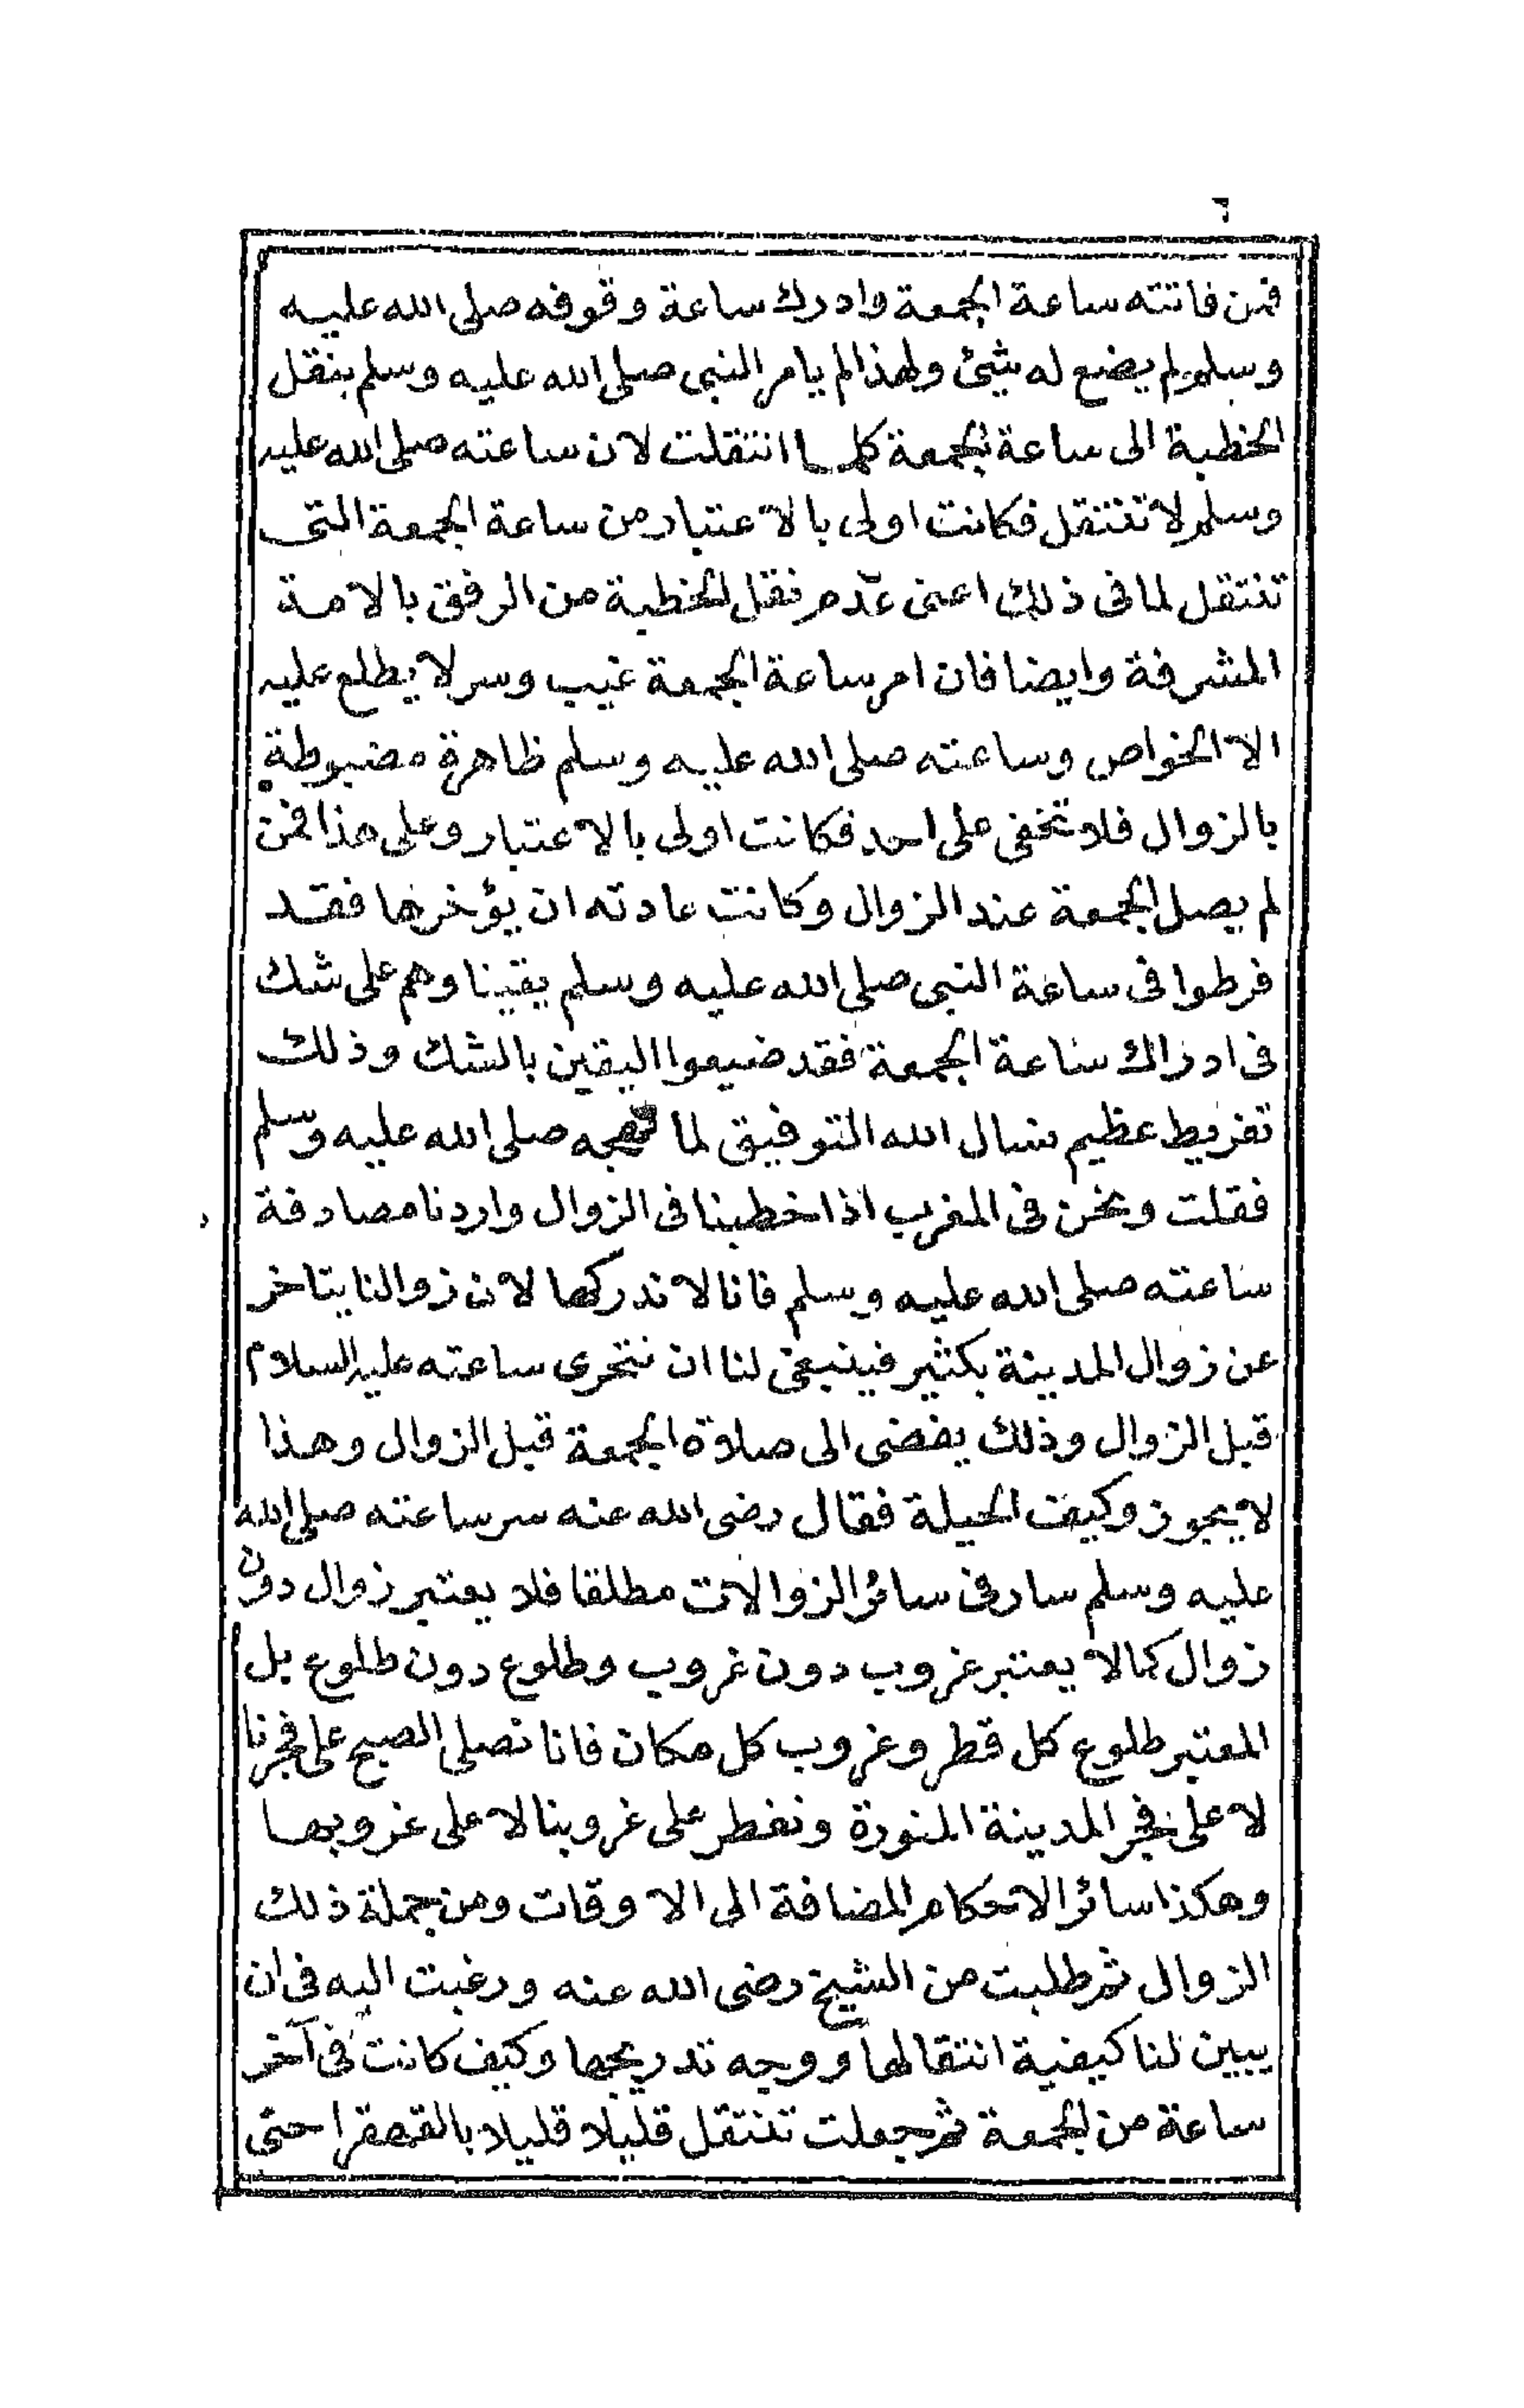 ٦
فمن فاتته ساعة الجمعة وادرك ساعة وقوفه صلى الله عليه
وسلم لم يضع له شئ ولهذا لم يامر النبى صلى الله عليه وسلم بنقل
الخطبة الى ساعة الجمعة كلما انتقلت لان ساعته صلى الله عليه
وسلم لا تنتقل فكانت اولى بالاعتبار من ساعة الجمعة التى
تنتقل لما فى ذلك اعنى عدم نقل الخطبة من الرفق بالامة
المشرفة وايضا فان امر ساعة الجمعة غيب وسر لا يطلع عليه
الا الخواص وساعته صلى الله عليه وسلم ظاهرة مضبوطة
بالزوال فلا تخفى على احد فكانت اولى بالاعتبار وعلى هذا فمن
لم يصل الجمعة عند الزوال وكانت عادته ان يؤخرها فقد
فرطوا فى ساعة النبى صلى الله عليه وسلم يقينا وهم على شك
فى ادراك ساعة الجمعة فقد ضيعوا اليقين بالشك وذلك
تفريط عظيم نسال الله التوفيق لما صلى الله عليه وسلم
فقلت ونحن فى المغرب اذا خطبنا فى الزوال واردنا مصادفة
ساعته صلى الله عليه وسلم فانا لا ندركها لان زوالنا يتاخر
عن زوال المدينة بكثير فينبغى لنا ان نتحرى ساعته عليه السلام
قبل الزوال وذلك يفضى الى صلاة الجمعة قبل الزوال وهذا
لا يجوز وكيف الحيلة فقال رضى الله عنه سر ساعته صلى الله
عليه وسلم سار فى سائر الزوالات مطلقا فلا يعتبر زوال دون
زوال كما لا يعتبر غروب دون غروب وطلوع دون طلوع بل
المعتبر طلوع كل قطر وغروب كل مكان فانا نصلى الصبح على فجرنا
لا على فجر المدينة المنورة ونفطر على غروبنا لا على غروبها
وهكذا سائر الاحكام المضافة الى الاوقات ومن جملة ذلك
الزوال ثم طلبت من الشيخ رضى الله عنه ورغبت اليه فى ان
يبين لنا كيفية انتقالها ووجه تدريجها وكيف كانت فى آخر
ساعة من الجمعة ثم جعلت تنتقل قليلا قليلا بالقهقرا حتى